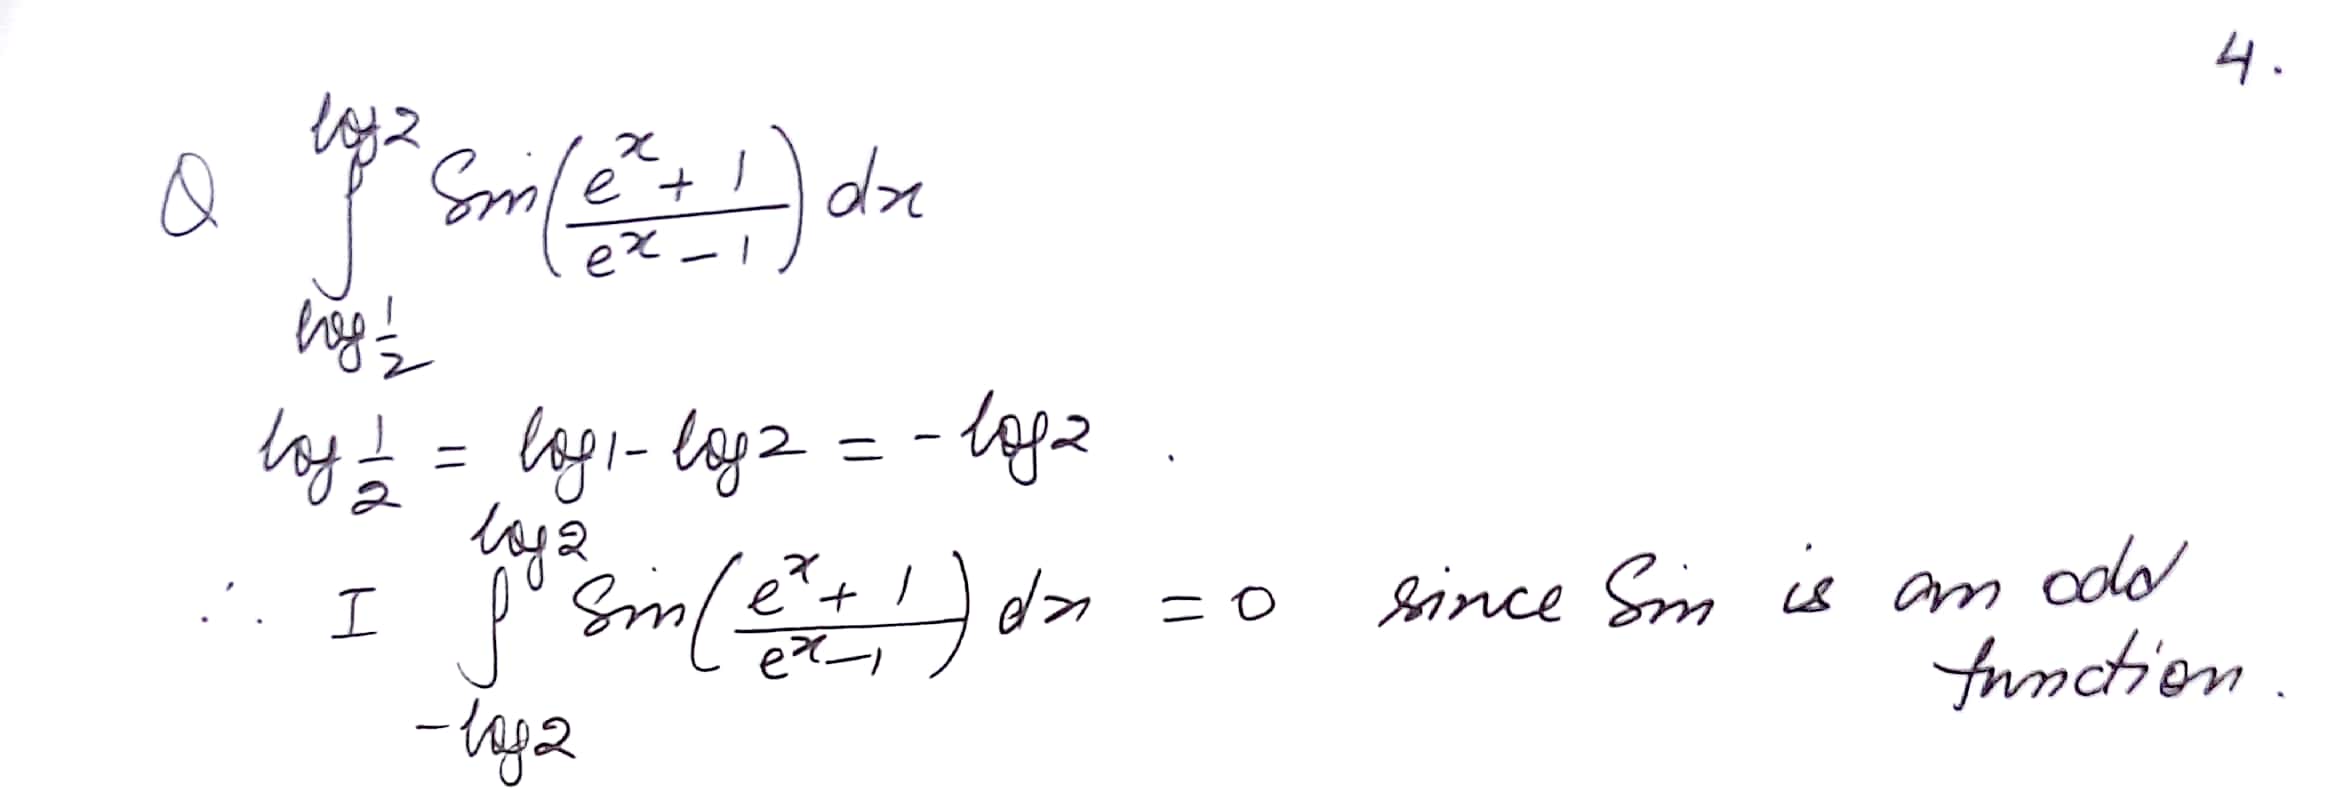 4.
Q ∫_{log 1/2}^{log 2} Sin((e^x + 1)/(e^x - 1)) dx
log 1/2 = log 1 - log 2 = - log 2 .
∴ I ∫_{-log 2}^{log 2} Sin((e^x + 1)/(e^x - 1)) dx = 0 since Sin is an odd
function.